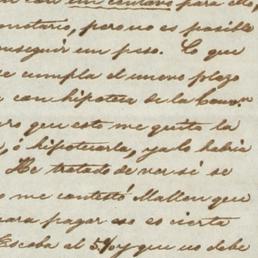 un centavo para ello,
pero no es posible
conseguir un peso. Lo que
se cumpla el nuevo plazo
con hipoteca de la
que esto me quita la
ó hipotecarla, ya lo habia
He tratado de ver si se
me contestó Mallen que
para pagar eso es cierto
Escoba al 5% y que no debe